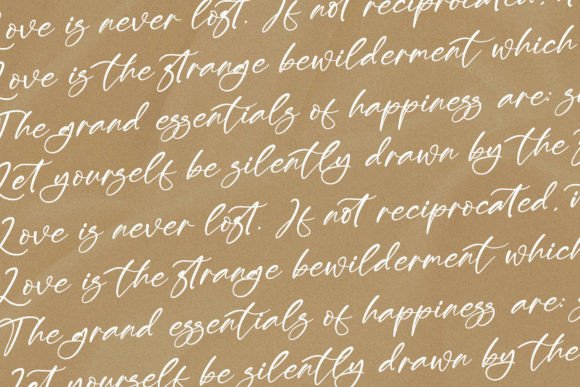 Love is never lost. If not reciprocated,
Love is the strange bewilderment which
The grand essentials of happiness are:
Let yourself be silently drawn by the
Love is never lost. If not reciprocated,
Love is the strange bewilderment which
The grand essentials of happiness are:
Let yourself be silently drawn by the